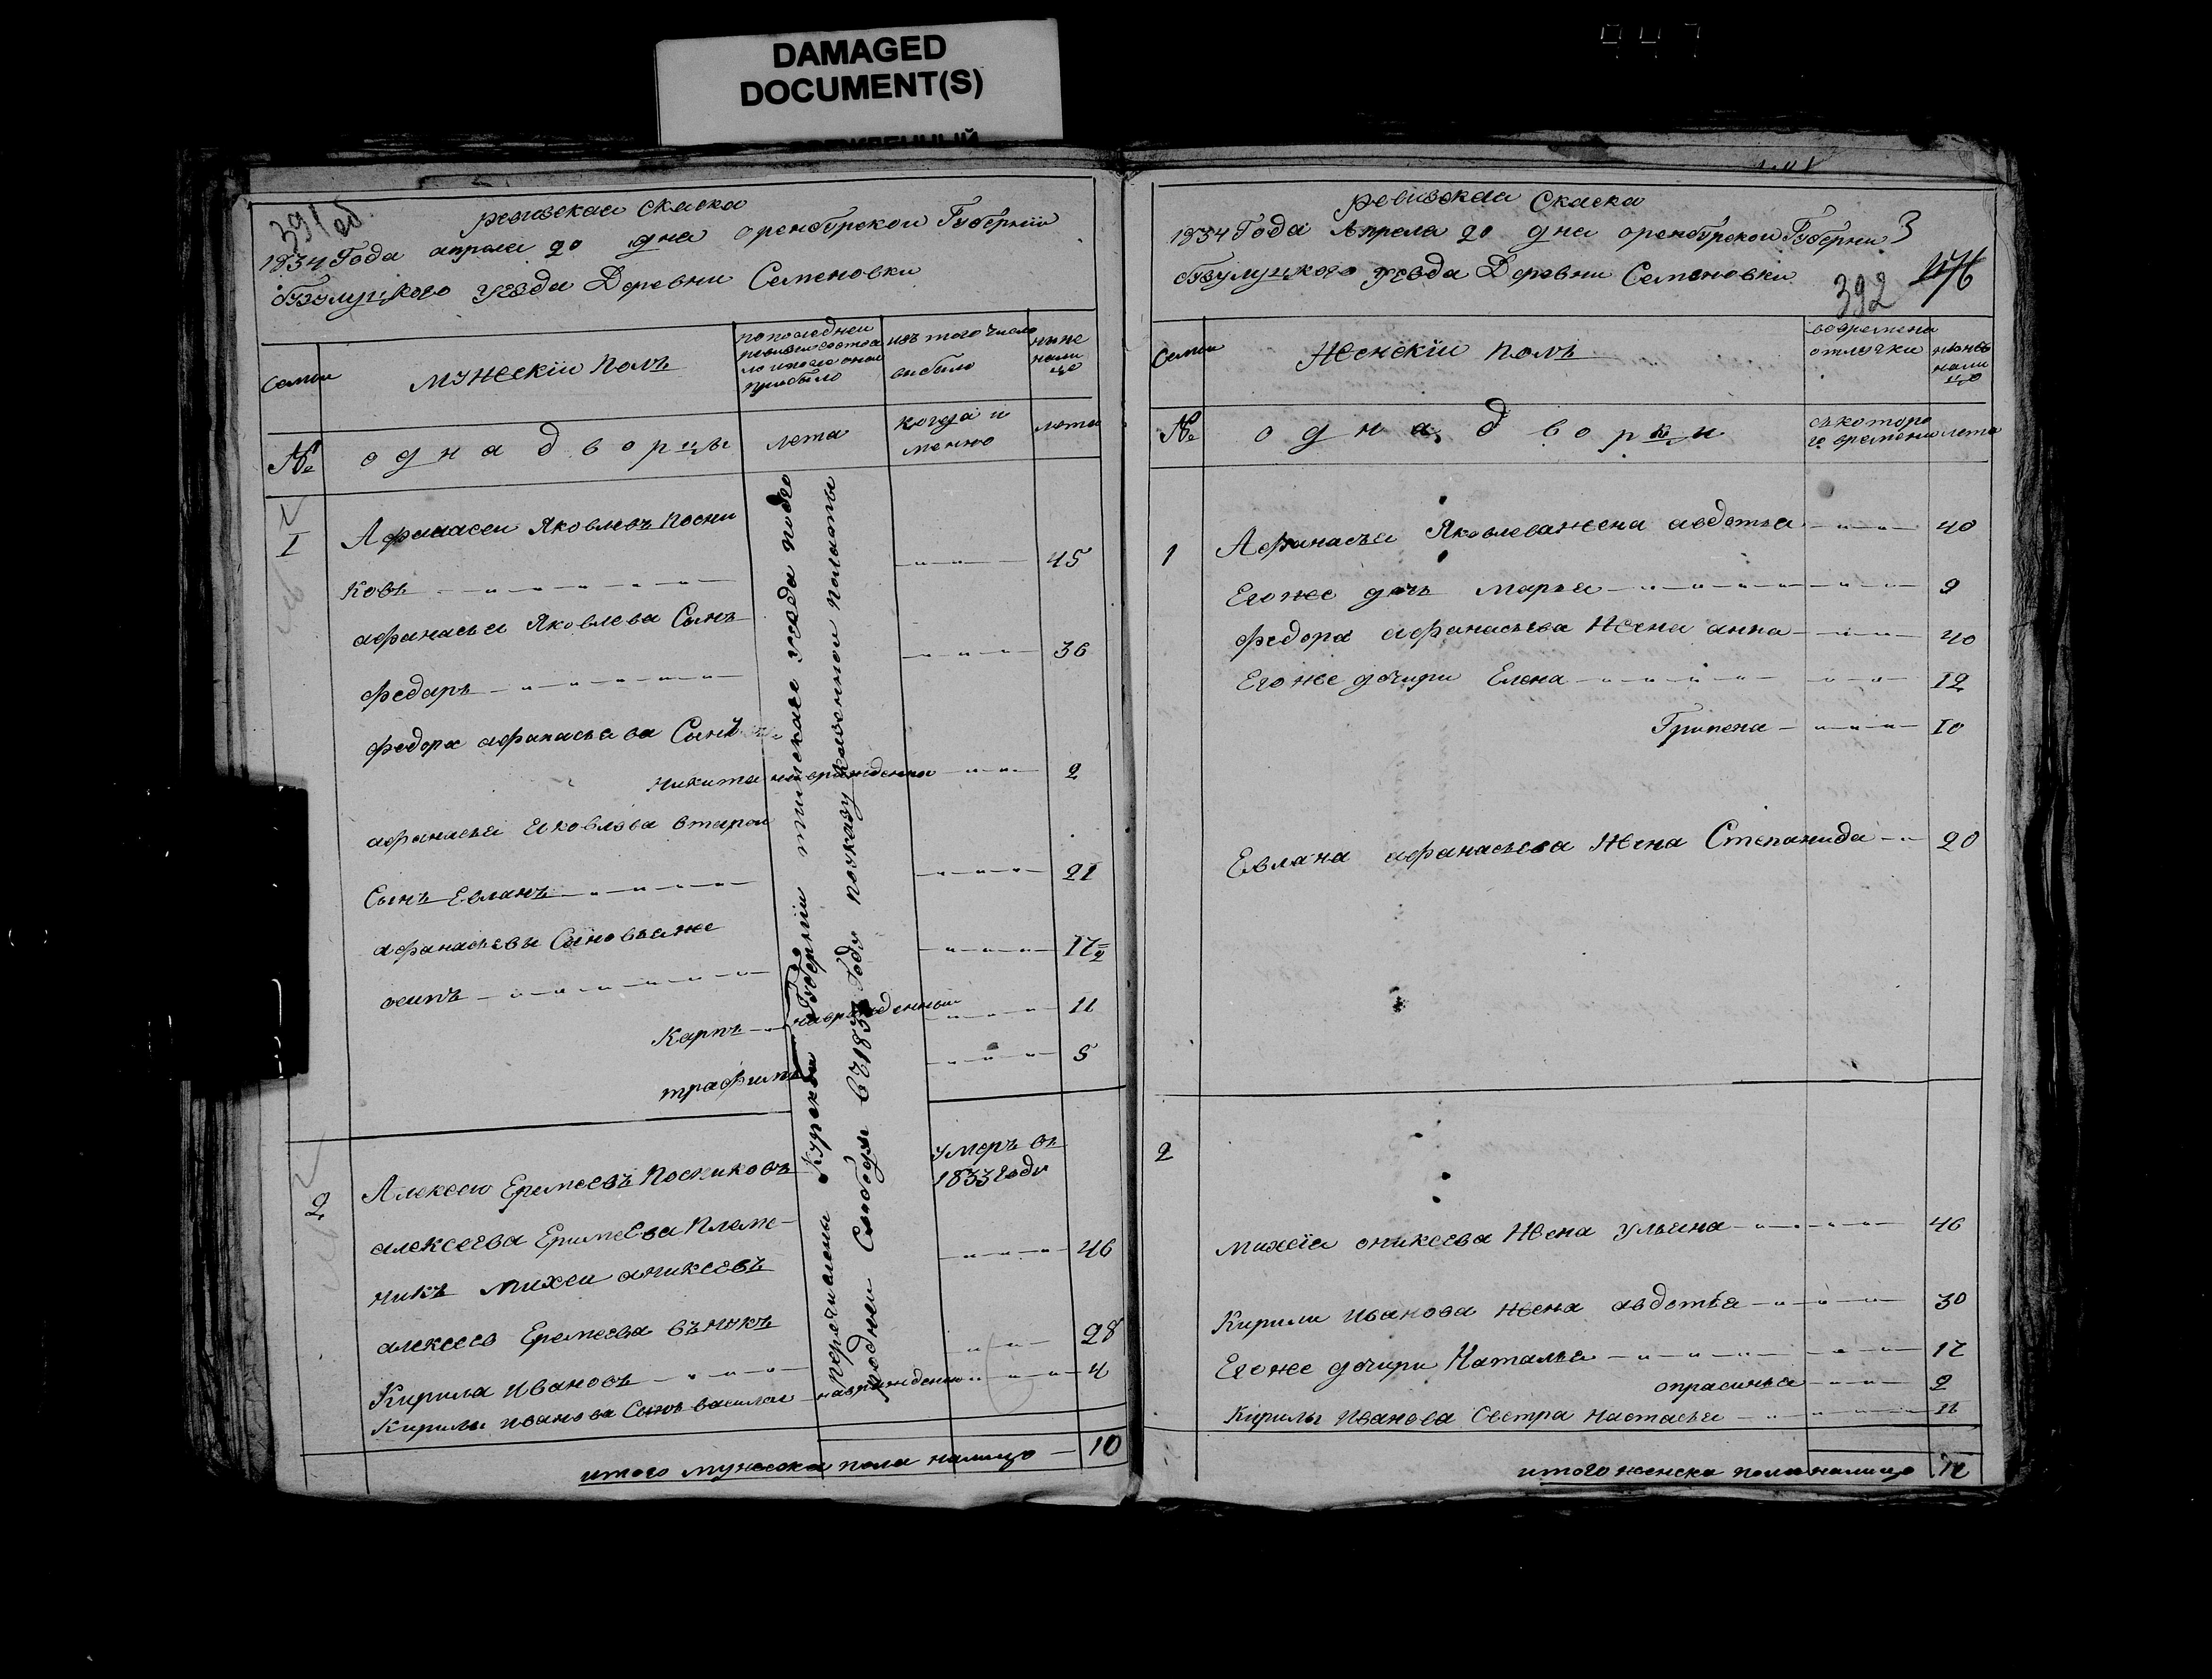 DAMAGED
DOCUMENT(S)
391 об
ревизская скаска
1834 Года апреля 20 дня оренбурской Губернии
бузулуцкого уезда Деревни Семеновки
семьи
мужескіи полъ
по последней
ревизии состоя
ло и после оной
прибыло
изъ того числа
выбыло
ныне
нали
цо
№
однадворцы
лета
когда и
менно
лета
1
Афанасеи Яковлевъ посни
ковъ 45
афанасья Яковлева Сынъ
федаръ 36
федора афанасьева Сынъ
никита новорожденны 2
афанасья яковлева втарои
Сынъ Евланъ 21
афанасьевы Сыновья же
осипъ 17 1/2
Карпъ новорожденныи 11
трафимъ 5
2
Алексеи Еремеевъ Посниковъ умеръ въ
1833 году
алексеева Еримеева племе-
никъ михеи аникеевъ 46
алексея Еремеева внукъ
Кирила Ивановъ 28
Кирилы иванова Сынъ василеи новорожденны 4
итого мужеска пола налицо 10
перечислены Курской Губерніи тимскаго уезда подго
родней Слободы въ 1832 Году по указу казенной полаты
ревизская Скаска
1834 Года Апреля 20 дня оренбурской Губернии 3
бузулуцкого уезда Деревни Семеновки
392
семьи
Женскіи полъ
во времени
отлучки
ныне
нали
цо
№
однадворки
съ которо
го времени
лета
1
Афанасья Яковлева жена авдотья 40
Его же дочь марья 9
федора афанасьева Жена анна 40
Его же дочири Елена 12
Грипена 10
Евлана афанасьева Жена Степанида 20
2
Михеiя оникеева Жена ульяна 46
Кирилы иванова жена авдотья 30
Его же дочири Наталья 12
опрасинья 2
Кирилы Иванова Сестра настасья 11
итого женска пола налицо